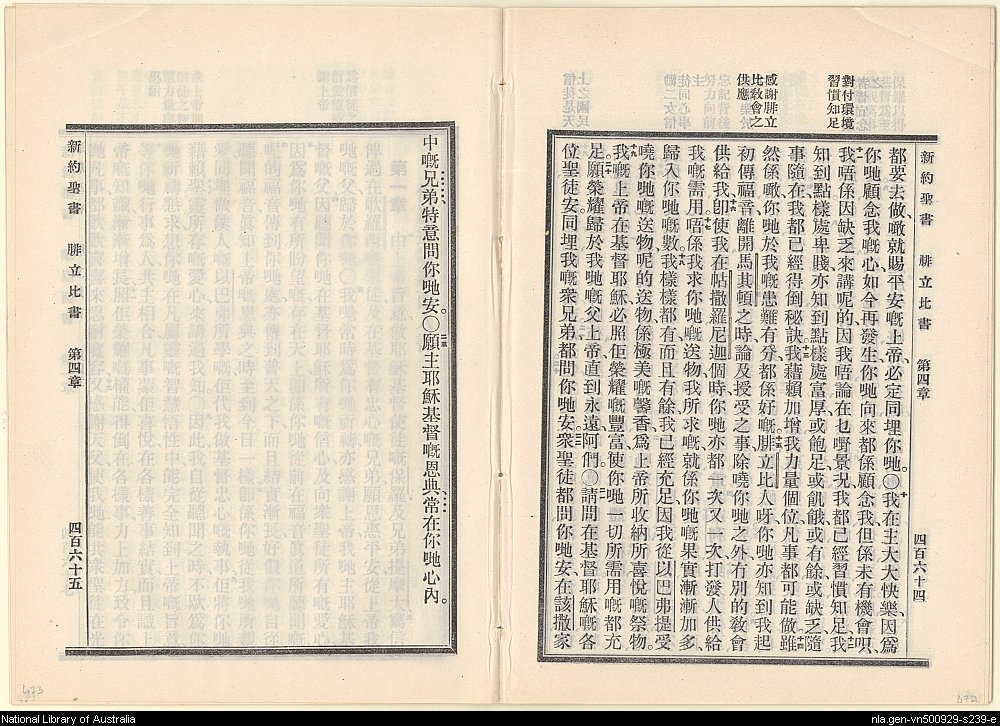 新約聖書 腓立比書 第四章 四百六十四
對付環境
習慣知足
感謝腓立
比敎會之
供應
都要去做、噉就賜平安嘅上帝、必定同埋你哋。〇十我在主大大快樂、因爲
你哋顧念我嘅心、如今再發生、你哋向來都係顧念我、但係未有機會唄、
十一我唔係因缺乏來講呢的、因我唔論在乜嘢景况、我都已經習慣知足、十二我
知到點樣處卑賤、亦知到點樣處富厚、或飽足、或飢餓、或有餘、或缺乏、隨
事隨在、我都已經得到秘訣、十三我藉賴加增我力量個位、凡事都可能做、十四雖
然係噉、你哋於我嘅患難有分、都係好嘅、十五腓立比人呀、你哋亦知到我起
初傳福音、離開馬其頓之時、論及授受之事、除嘵你哋之外、有別的敎會
供給我、十六卽使我在帖撒羅尼迦個時、你哋亦都一次又一次打發人供給
我嘅需用、十七唔係我求你哋嘅送物、我所求嘅、就係你哋嘅果實漸漸加多、
歸入你哋嘅數、十八我樣樣都有、而且有餘、我已經充足、因我從以巴弗提受
嘵你哋嘅送物、呢的送物係極美嘅馨香、爲上帝所收納所喜悅嘅祭物。
十九我嘅上帝在基督耶穌必照佢榮耀嘅豐富、使你哋一切所需用嘅都充
足。二十願榮耀歸於我哋嘅父上帝、直到永遠、阿們。〇二一請問在基督耶穌嘅各
位聖徒安、同埋我嘅衆兄弟、都問你哋安、二二衆聖徒都問你哋安、在該撒家
中嘅兄弟、特意問你哋安。〇二三願主耶穌基督嘅恩典、常在你哋心內。
新約聖書 腓立比書 第四章 四百六十五
473
472
National Library of Australia
nla.gen-vn500929-s239-e